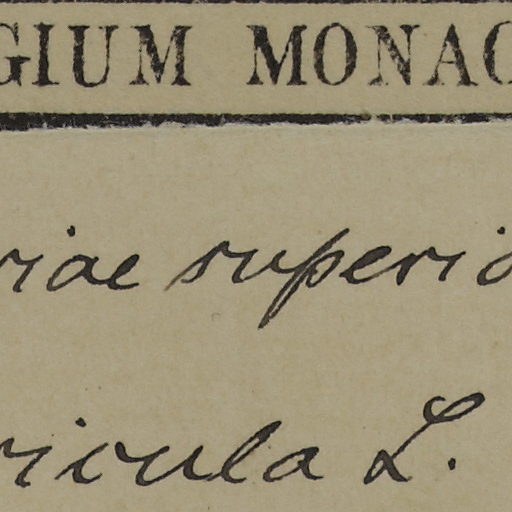 GIUM MONAC
riae superio
ricula L.